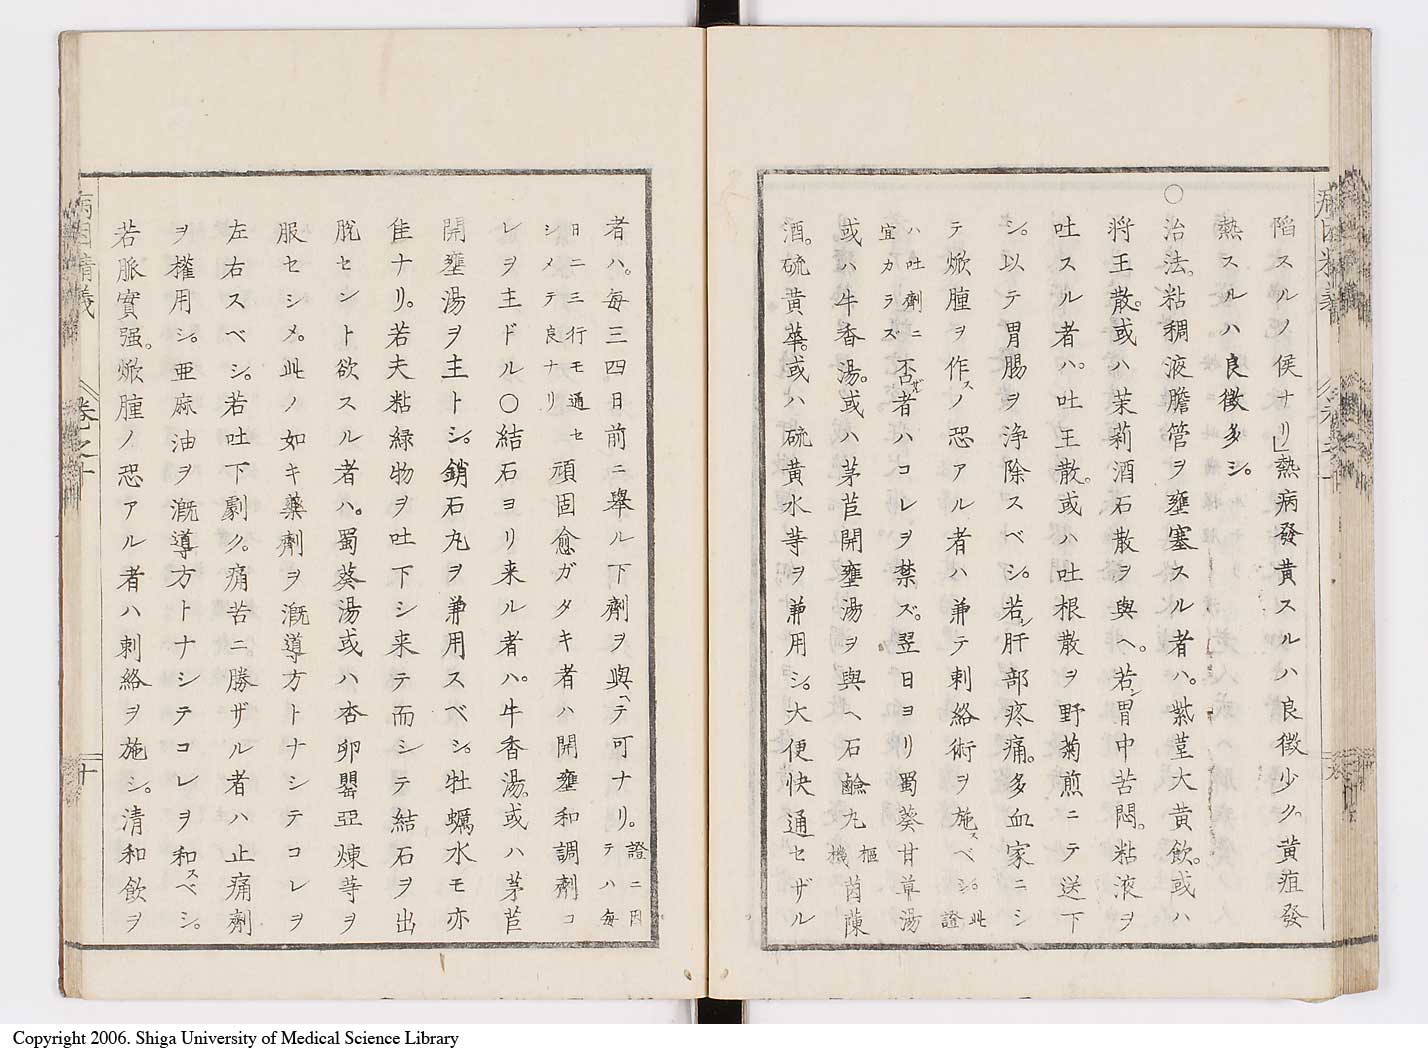 陷スルノ候ナリ」熱病發黄スルハ良徴少ク。黄疸發
熱スルハ良徴多シ。
○治法。粘稠液膽管ヲ壅塞スル者ハ。紫莖大黄飲。或ハ
将王散。或ハ茉莉酒石散ヲ與ヘ。若シ胃中苦悶。粘液ヲ
吐スル者ハ。吐王散。或ハ吐根散ヲ野菊煎ニテ送下
シ。以テ胃腸ヲ浄除スベシ。若シ肝部疼痛。多血家ニシ
テ焮腫ヲ作スノ恐アル者ハ兼テ刺絡術ヲ施スベシ。此證
ハ吐劑ニ宜カラス否ザル者ハコレヲ禁ズ。翌日ヨリ蜀葵甘草湯
或ハ牛香湯。或ハ茅苣開壅湯ヲ與ヘ石鹼丸樞機茵蔯
酒。硫黄華。或ハ硫黄水等ヲ兼用シ。大便快通セザル
者ハ。毎三四日前ニ舉ル下劑ヲ與ヘテ可ナリ。證ニ因テハ毎
日ニ三行モ通セシメテ良ナリ頑固愈ガタキ者ハ開壅和調劑コ
レヲ主ドル○結石ヨリ来ル者ハ。牛香湯。或ハ茅苣
開壅湯ヲ主トシ。銷石丸ヲ兼用スベシ。牡蠣水モ亦
佳ナリ。若夫粘緑物ヲ吐下シ来テ而シテ結石ヲ出
脱セント欲スル者ハ。蜀葵湯或ハ杏卵罌亞煉等ヲ
服セシメ。此ノ如キ藥劑ヲ漑導方トナシテコレヲ
左右スベシ。若吐下劇ク。痛苦ニ勝ザル者ハ止痛劑
ヲ權用シ。亜麻油ヲ漑導方トナシテコレヲ和スベシ。
若脈實强。焮腫ノ恐アル者ハ刺絡ヲ施シ。清和飲ヲ
病因精義
卷之十
十
Copyright 2006. Shiga University of Medical Science Library